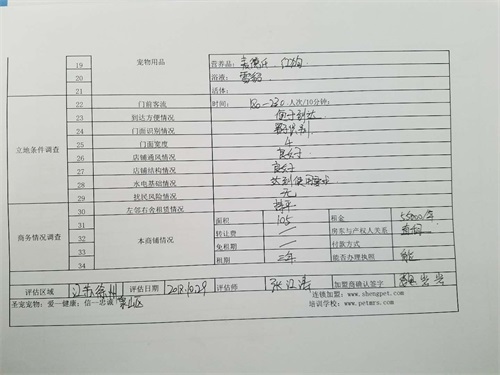 19 宠物用品 营养品：
20 浴液：雪貂
21 活体：
立地条件调查
22 门前客流 时间： 人次/10分钟；
23 到达方便情况 便于到达
24 门面识别情况
25 门面宽度 4
26 店铺通风情况 良好
27 店铺结构情况 良好
28 水电基础情况 达到使用要求
29 扰民风险情况 无
30 左邻右舍租赁情况 持平
商务情况调查
31 本商铺情况 面积 105 租金 55000/年
32 转让费 / 房东与产权人关系
33 免租期 / 付款方式
34 租期 三年 能否办理执照 能
评估区域 江苏徐州 评估日期 2018.10.29 评估师 加盟商确认签字
圣宠宠物：爱一健康；信一忠诚 连锁加盟：www.shengpet.com
培训学校：www.petmrs.com